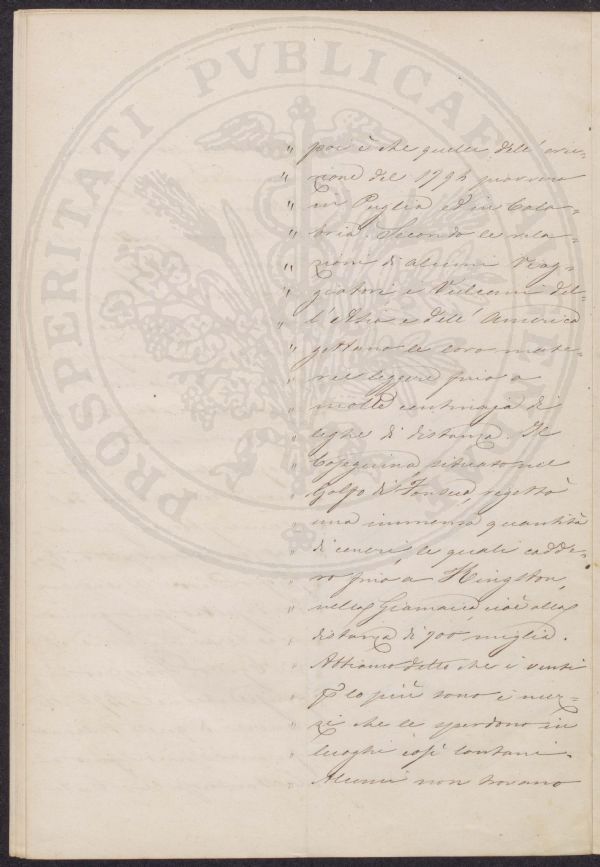 PROSPERITATI PVBLICAE
" poi è che quelle dell' eru-
" zione del 1794 giunsero
" in Puglia ed in Cala-
" bria. Secondo le rela-
" zioni di alcuni Viag-
" giatori i Vulcani del-
" l'Asia e dell' America
" gettano le loro mate-
" rie leggere fino a
" molte centinaja di
" leghe di distanza. Il
" Coseguina situato nel
" Golfo di Fonseca, rigettò
" una immensa quantità
" di ceneri, le quali cadde-
" ro fino a Kingston,
" nella Giamaica cioè alla
" distanza di 700 miglia.
" Abbiamo detto che i venti
" p lo più sono i mez-
" zi che le spendono in
" luoghi così lontani.
Alcuni non trovano